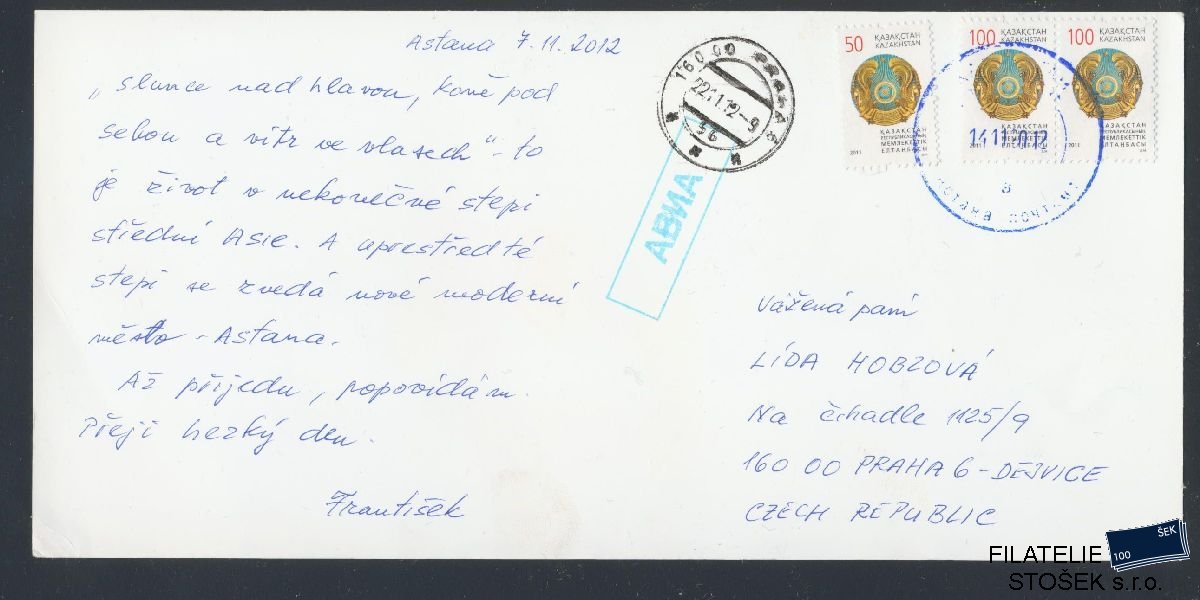 Astana 7.11.2012
„slunce nad hlavou, koně pod
sebou a vítr ve vlasech" - to
je život v nekonečné stepi
střední Asie. A uprostřed té
stepi se zvedá nové moderní
město - Astana.
Až přijedu, popovídám.
Přeji hezký den.
František
160 00 PRAHA 6
22.11.12-9
56
АВИА
50 ҚАЗАҚСТАН
KAZAKHSTAN
ҚАЗАҚСТАН
РЕСПУБЛИКАСЫНЫҢ
МЕМЛЕКЕТТІК
ЕЛТАҢБАСЫ
2011
100 ҚАЗАҚСТАН
KAZAKHSTAN
ҚАЗАҚСТАН
РЕСПУБЛИКАСЫНЫҢ
МЕМЛЕКЕТТІК
ЕЛТАҢБАСЫ
2011
100 ҚАЗАҚСТАН
KAZAKHSTAN
ҚАЗАҚСТАН
РЕСПУБЛИКАСЫНЫҢ
МЕМЛЕКЕТТІК
ЕЛТАҢБАСЫ
2011
14.11.2012
АСТАНА ПОЧТАМТ
Vážená paní
LÍDA HOBZOVÁ
Na čihadle 1125/9
160 00 PRAHA 6 - DEJVICE
CZECH REPUBLIC
FILATELIE
STOŠEK s.r.o.
100 ŠEK